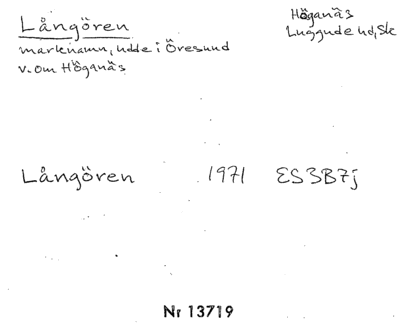 Långören
Höganäs
Luggude hd, Sk
marknamn, udde i Öresund
v. om Höganäs
Långören 1971 ES3B7j
Nr 13719